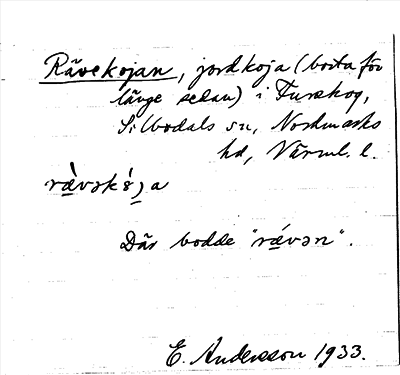 Rävekojan, jordkoja (borta för
länge sedan) i Furskog,
Silbodals sn, Nordmarks
hd, Värml. l.
rævəkɔja
Där bodde "rævən".
E. Andersson 1933.